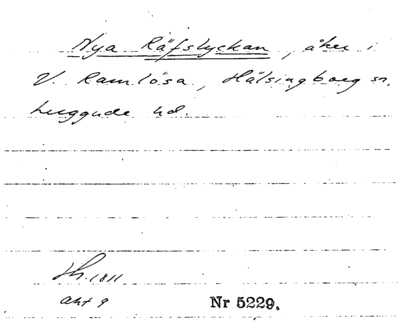 Nya Räfslyckan, åker i
V. Ramlösa, Hälsingborg sn,
Luggude hd.
Lm. 1811
akt 9
Nr 5229.